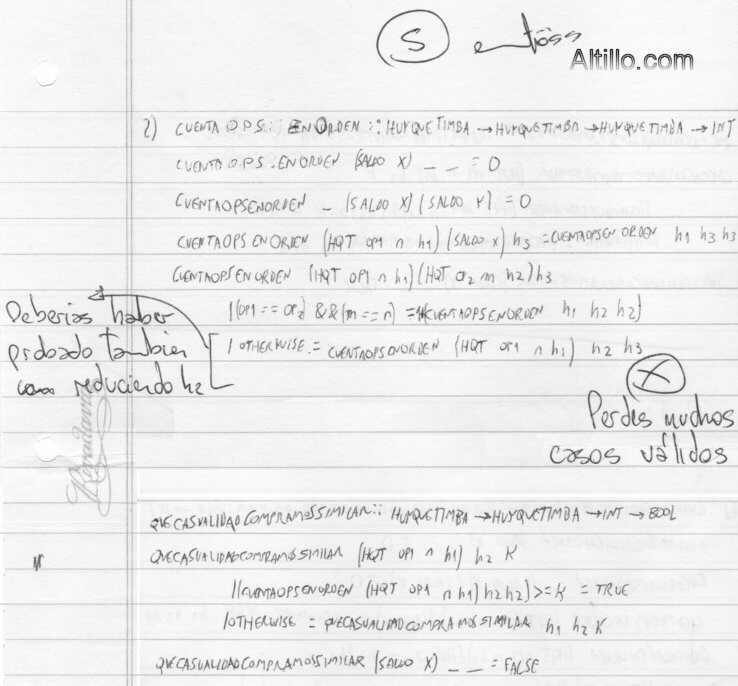 S
Altillo.com
2) CUENTAOPSENORDEN :: HUYQUETIMBA → HUYQUETIMBA → HUYQUETIMBA → INT
CUENTAOPSENORDEN (SALDO X) _ _ = 0
CUENTAOPSENORDEN _ (SALDO X) (SALDO Y) = 0
CUENTAOPSENORDEN (HQT OP1 n h1) (SALDO X) h3 = CUENTAOPSENORDEN h1 h3 h3
CUENTAOPSENORDEN (HQT OP1 n h1) (HQT OP2 m h2) h3
|(OP1 == OP2) && (m == n) = 1+(CUENTAOPSENORDEN h1 h2 h2)
| OTHERWISE = CUENTAOPSENORDEN (HQT OP1 n h1) h2 h3
Deberías haber
probado también
reduciendo h2
X
Perdes muchos
casos válidos
QUECASUALIDADCOMPRAMOSSIMILAR :: HUYQUETIMBA → HUYQUETIMBA → INT → BOOL
QUECASUALIDADCOMPRAMOSSIMILAR (HQT OP1 n h1) h2 K
|(CUENTAOPSENORDEN (HQT OP1 n h1) h2 h2) >= K = TRUE
|OTHERWISE = QUECASUALIDADCOMPRAMOSSIMILAR h1 h2 K
QUECASUALIDADCOMPRAMOSSIMILAR (SALDO X) _ _ = FALSE